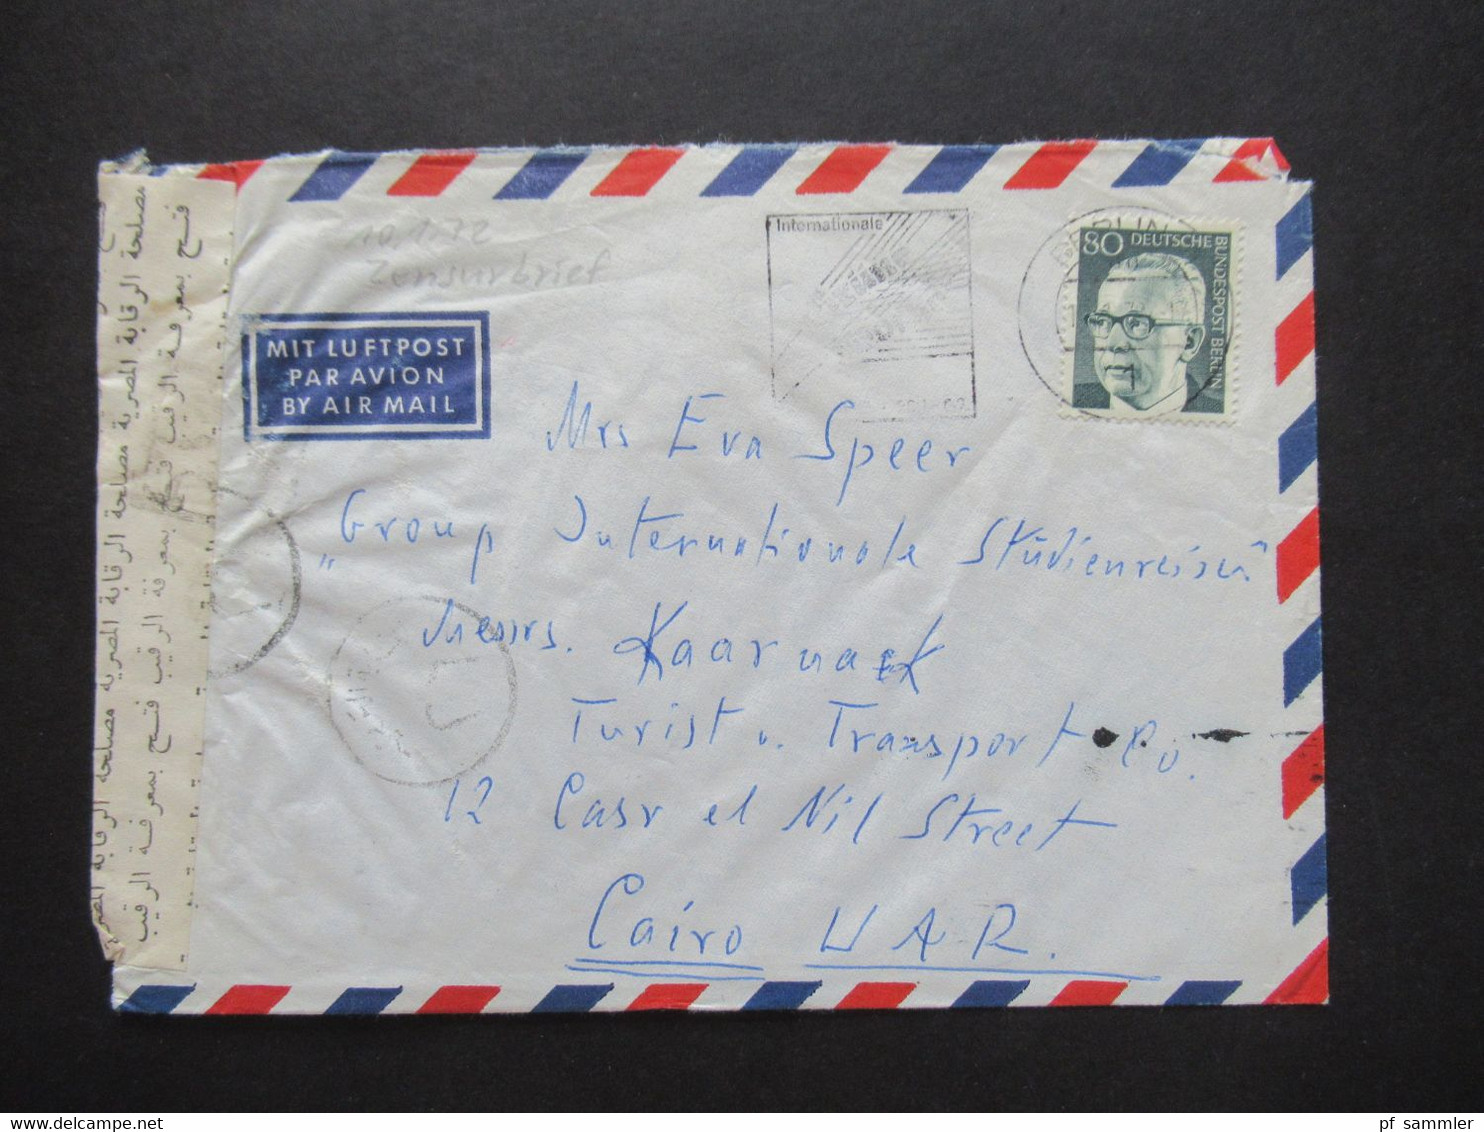 10.1.72
Zensurbrief
MIT LUFTPOST
PAR AVION
BY AIR MAIL
Internationale
BERLIN
80 DEUTSCHE
BUNDESPOST BERLIN
Mrs Eva Speer
„Group Internationale Studienreisen"
Messrs. Kaarnack
Turist u. Transport Co.
12 Casr el Nil Street
Cairo U.A.R.
مصلحة الرقابة المصرية مصلحة الرقابة المصرية مصلحة الرقابة المصرية
فتح بمعرفة الرقيب فتح بمعرفة الرقيب فتح بمعرفة الرقيب
pf sammler